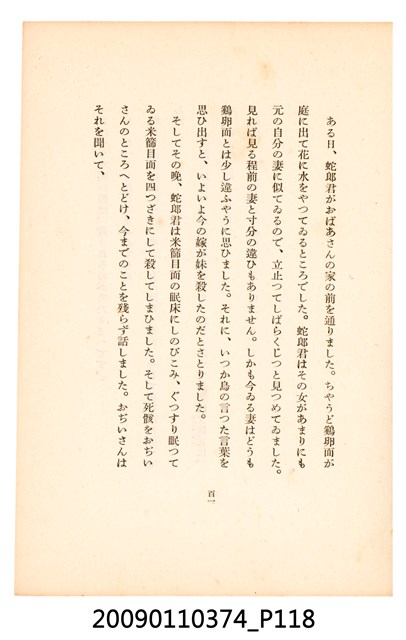 ある日、蛇郎君がおばあさんの家の前を通りました。ちやうど鷄卵面が
庭に出て花に水をやつてゐるところでした。蛇郎君はその女があまりにも
元の自分の妻に似てゐるので、立止つてしばらくじつと見つめてゐました。
見れば見る程前の妻と寸分の違ひもありません。しかも今ゐる妻はどうも
鷄卵面とは少し違ふやうに思ひました。それに、いつか鳥の言つた言葉を
思ひ出すと、いよいよ今の嫁が妹を殺したのだとさとりました。
そしてその晩、蛇郎君は米篩目面の眠床にしのびこみ、ぐつすり眠つて
ゐる米篩目面を四つざきにして殺してしまひました。そして死骸をおぢい
さんのところへとどけ、今までのことを残らず話しました。おぢいさんは
それを聞いて、
百一
20090110374_P118